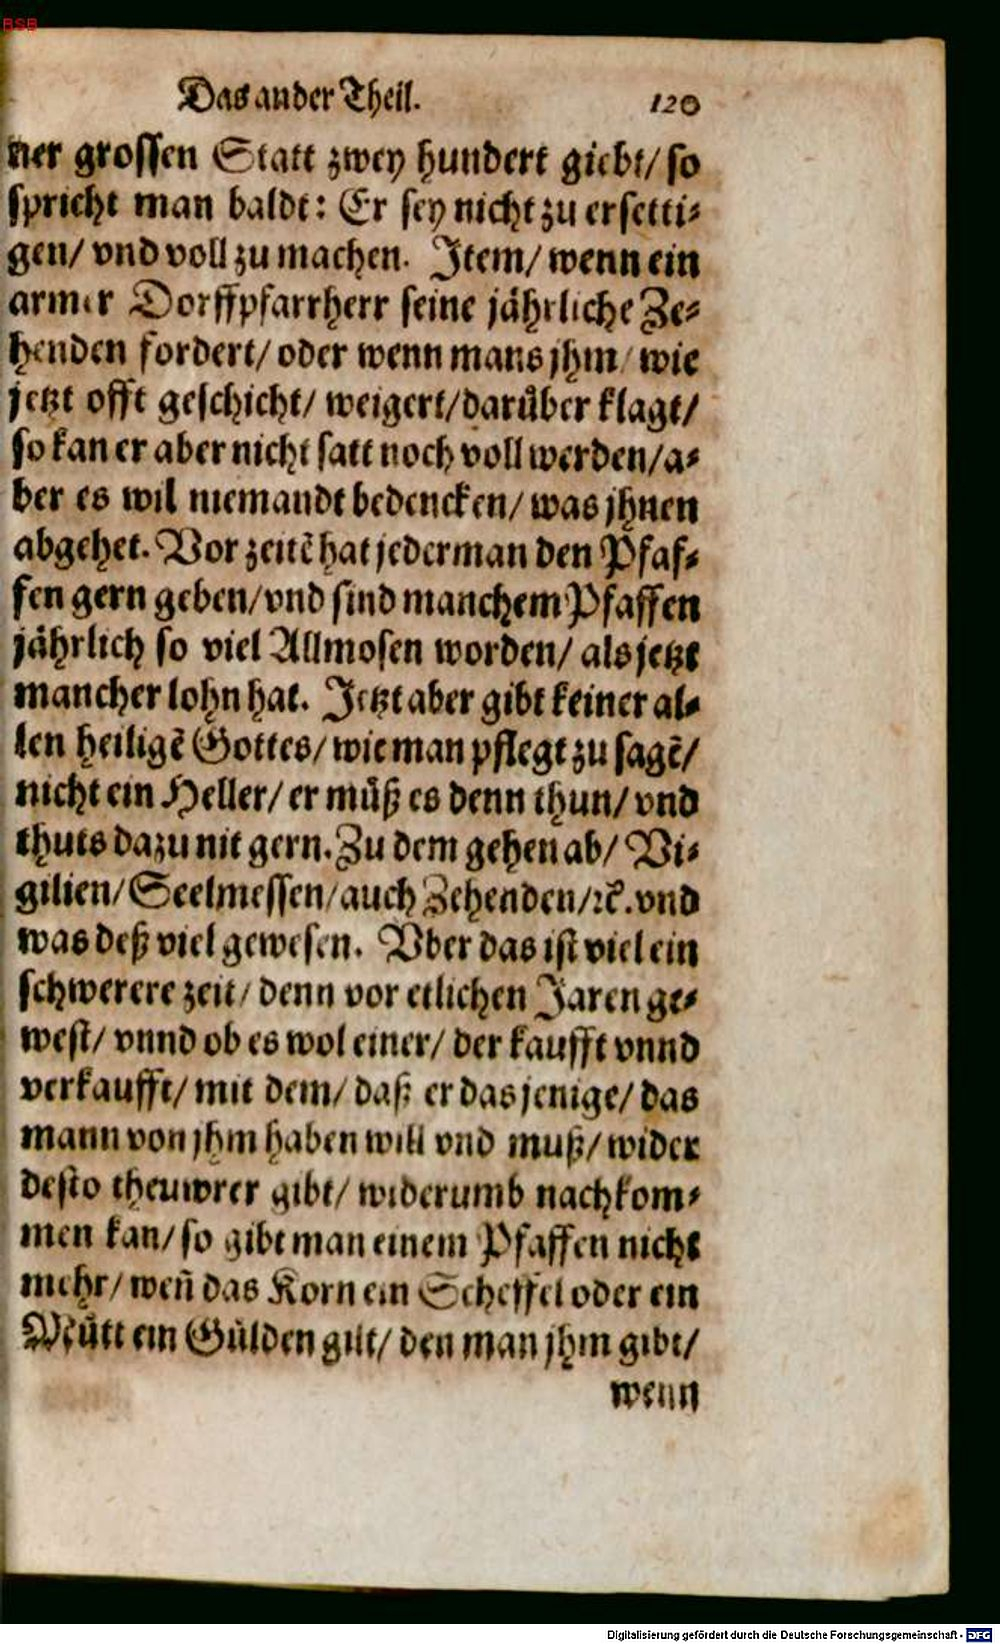 BSB
Das ander Theil. 120
ner grossen Statt zwey hundert giebt/ so
spricht man baldt: Er sey nicht zu ersetti⸗
gen/ vnd voll zu machen. Item/ wenn ein
armer Dorffpfarrherr seine jährliche Ze⸗
henden fordert/ oder wenn mans jhm/ wie
jetzt offt geschicht/ weigert/ darüber klagt/
so kan er aber nicht satt noch voll werden/ a⸗
ber es wil niemandt bedencken/ was jhnen
abgehet. Vor zeitẽ hat jederman den Pfaf⸗
fen gern geben/ vnd sind manchem Pfaffen
jährlich so viel Allmosen worden/ als jetzt
mancher lohn hat. Jetzt aber gibt keiner al⸗
len heiligẽ Gottes/ wie man pflegt zu sagẽ/
nicht ein Heller/ er müß es denn thun/ vnd
thuts dazu nit gern. Zu dem gehen ab/ Vi⸗
gilien/ Seelmessen/ auch Zehenden/ ꝛc̃. vnd
was deß viel gewesen. Vber das ist viel ein
schwerere zeit/ denn vor etlichen Jaren ge⸗
west/ vnnd ob es wol einer/ der kaufft vnnd
verkaufft/ mit dem/ daß er das jenige/ das
mann von jhm haben will vnd muß/ wider
desto theuwrer gibt/ widerumb nachkom⸗
men kan/ so gibt man einem Pfaffen nicht
mehr/ weñ das Korn ein Scheffel oder ein
Mütt ein Gülden gilt/ den man jhm gibt/
wenn
Digitalisierung gefördert durch die Deutsche Forschungsgemeinschaft - DFG